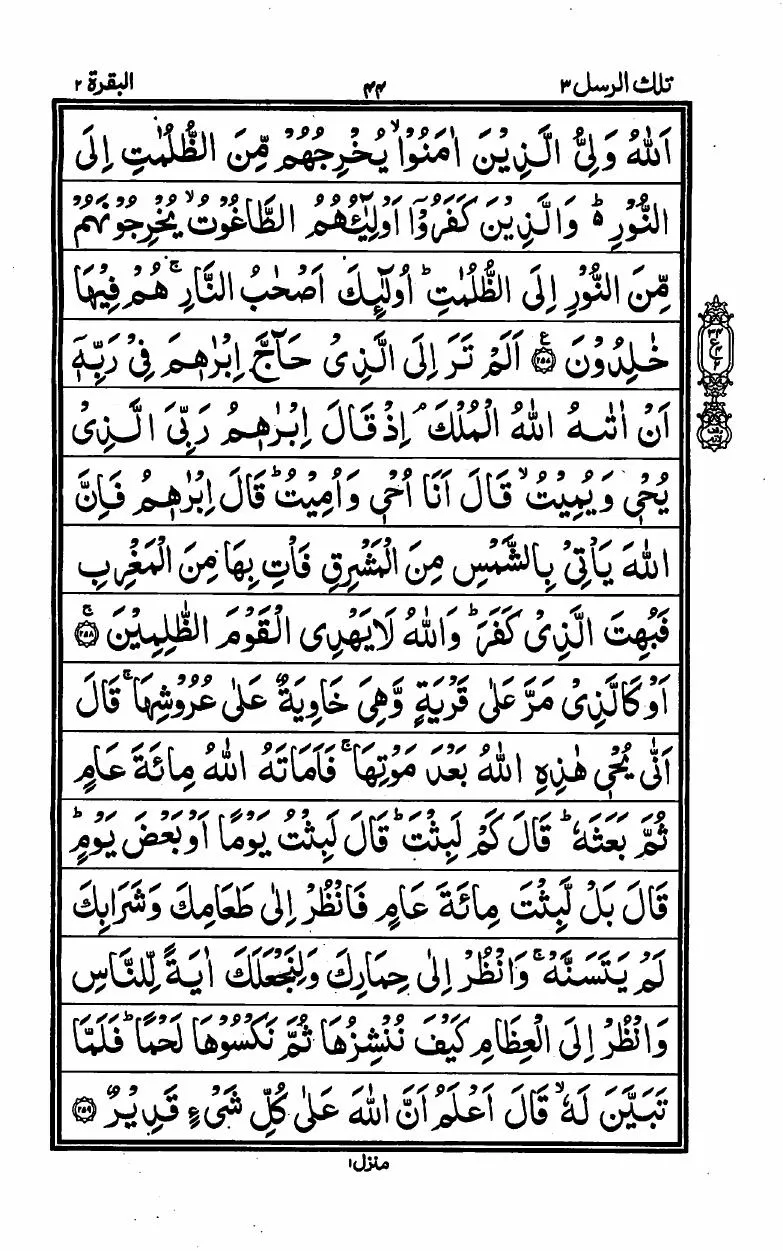 تلك الرسل ٣
٤٤
البقرة ٢
اَللّٰهُ وَلِیُّ الَّذِیْنَ اٰمَنُوْا ۙ یُخْرِجُهُمْ مِّنَ الظُّلُمٰتِ اِلَی
النُّوْرِ ؕ۬ وَالَّذِیْنَ كَفَرُوْۤا اَوْلِیٰٓـُٔهُمُ الطَّاغُوْتُ ۙ یُخْرِجُوْنَهُمْ
مِّنَ النُّوْرِ اِلَی الظُّلُمٰتِ ؕ اُولٰٓىِٕكَ اَصْحٰبُ النَّارِ ۚ هُمْ فِیْهَا
خٰلِدُوْنَ ۧ ﴿۲۵۷﴾ اَلَمْ تَرَ اِلَی الَّذِیْ حَآجَّ اِبْرٰهٖمَ فِیْ رَبِّهٖۤ
اَنْ اٰتٰىهُ اللّٰهُ الْمُلْكَ ۘ اِذْ قَالَ اِبْرٰهٖمُ رَبِّیَ الَّذِیْ
یُحْیٖ وَیُمِیْتُ ۙ قَالَ اَنَا اُحْیٖ وَاُمِیْتُ ؕ قَالَ اِبْرٰهٖمُ فَاِنَّ
اللّٰهَ یَاْتِیْ بِالشَّمْسِ مِنَ الْمَشْرِقِ فَاْتِ بِهَا مِنَ الْمَغْرِبِ
فَبُهِتَ الَّذِیْ كَفَرَ ؕ وَاللّٰهُ لَا یَهْدِی الْقَوْمَ الظّٰلِمِیْنَ ۚ ﴿۲۵۸﴾
اَوْ كَالَّذِیْ مَرَّ عَلٰی قَرْیَةٍ وَّهِیَ خَاوِیَةٌ عَلٰی عُرُوْشِهَا ۚ قَالَ
اَنّٰی یُحْیٖ هٰذِهِ اللّٰهُ بَعْدَ مَوْتِهَا ۚ فَاَمَاتَهُ اللّٰهُ مِائَةَ عَامٍ
ثُمَّ بَعَثَهٗ ؕ قَالَ كَمْ لَبِثْتَ ؕ قَالَ لَبِثْتُ یَوْمًا اَوْ بَعْضَ یَوْمٍ ؕ
قَالَ بَلْ لَّبِثْتَ مِائَةَ عَامٍ فَانْظُرْ اِلٰی طَعَامِكَ وَشَرَابِكَ
لَمْ یَتَسَنَّهْ ۚ وَانْظُرْ اِلٰی حِمَارِكَ وَلِنَجْعَلَكَ اٰیَةً لِّلنَّاسِ
وَانْظُرْ اِلَی الْعِظَامِ كَیْفَ نُنْشِزُهَا ثُمَّ نَكْسُوْهَا لَحْمًا ؕ فَلَمَّا
تَبَیَّنَ لَهٗ ۙ قَالَ اَعْلَمُ اَنَّ اللّٰهَ عَلٰی كُلِّ شَیْءٍ قَدِیْرٌ ﴿۲۵۹﴾
منزل ١